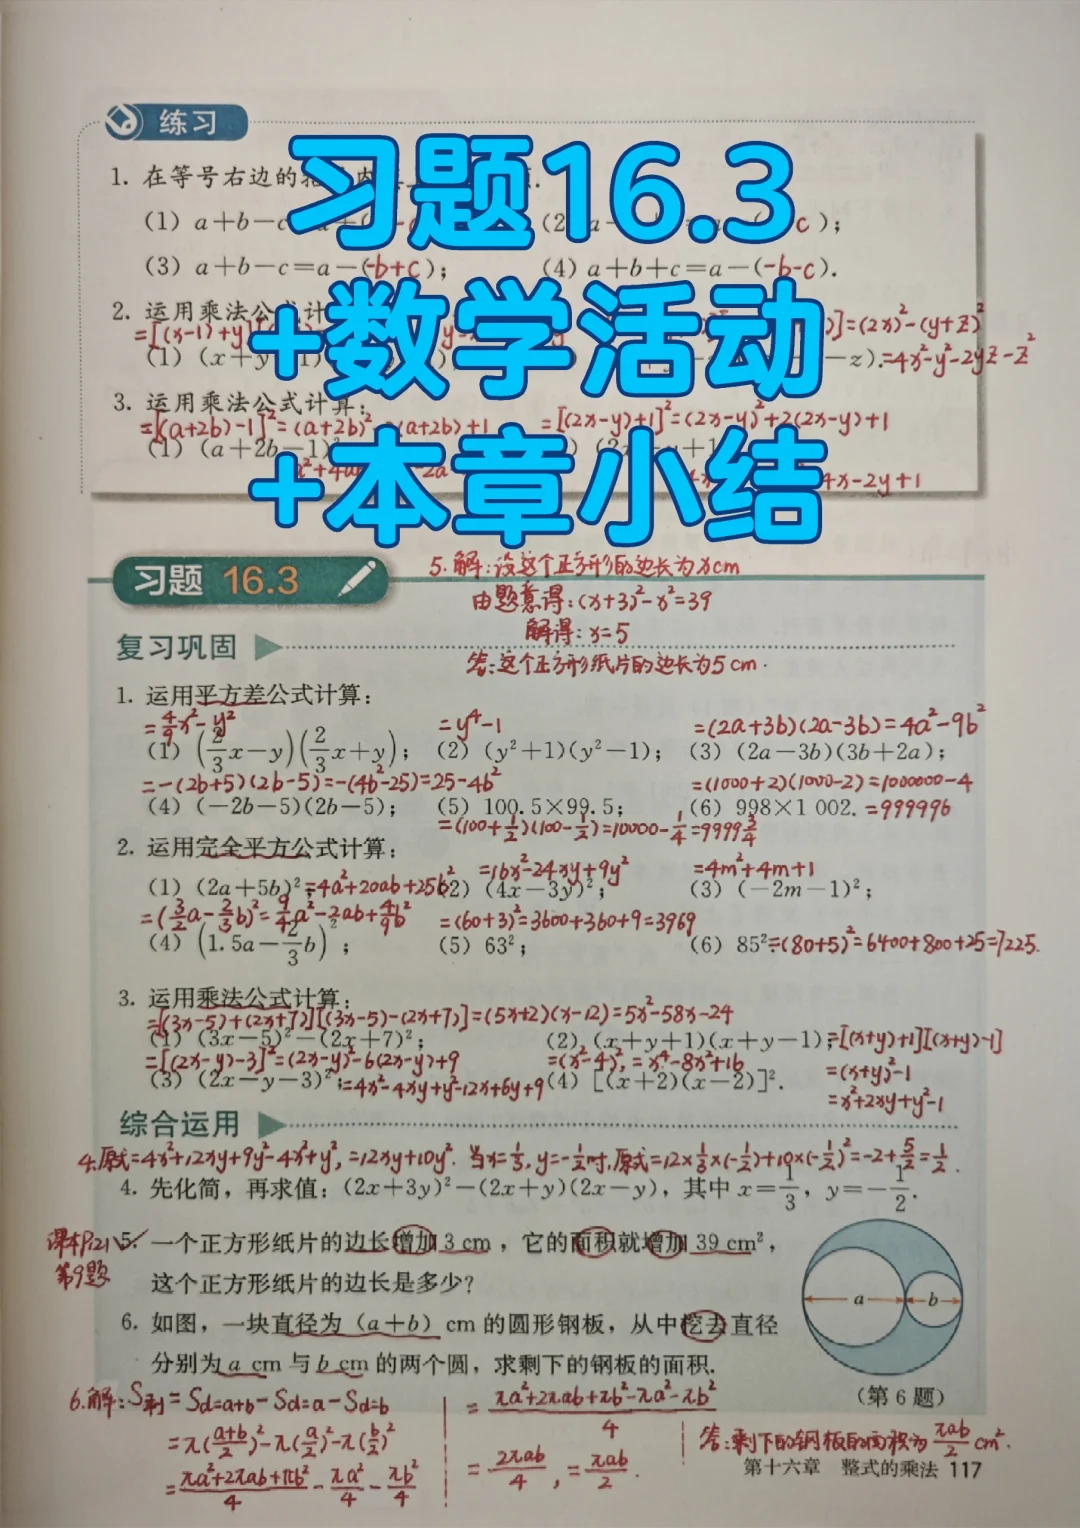 练习
习题16.3
+数学活动
+本章小结
1. 在等号右边的
(1) a+b-c
c );
(3) a+b-c=a-(-b+c);
(4) a+b+c=a-(-b-c).
2. 运用乘法公式计
=[(x-1)+y]
]=(2x)²-(y+z)²
(1) (x+y
-z).=4x²-y²-2yz-z²
3. 运用乘法公式计算:
=[(a+2b)-1]²=(a+2b)²
(a+2b)+1
=[(2x-y)+1]²=(2x-y)²+2(2x-y)+1
(1) (a+2b-1)²
4x-2y+1
习题 16.3
5.解:设这个正方形的边长为xcm
由题意得:(x+3)²-x²=39
解得:x=5
答:这个正方形纸片的边长为5cm.
复习巩固
1. 运用平方差公式计算:
=4/9x²-y²
=y⁴-1
=(2a+3b)(2a-3b)=4a²-9b²
(1) (2/3x-y)(2/3x+y);
(2) (y²+1)(y²-1);
(3) (2a-3b)(3b+2a);
=-(2b+5)(2b-5)=-(4b²-25)=25-4b²
=(1000+2)(1000-2)=1000000-4
(4) (-2b-5)(2b-5);
(5) 100.5×99.5;
(6) 998×1 002. =999996
=(100+1/2)(100-1/2)=10000-1/4=9999 3/4
2. 运用完全平方公式计算:
=16x²-24xy+9y²
=4m²+4m+1
(1) (2a+5b)²;=4a²+20ab+25b²
(2) (4x-3y)²;
(3) (-2m-1)²;
=(3/2a-2/3b)²=9/4a²-2ab+4/9b²
=(60+3)²=3600+360+9=3969
(4) (1.5a-2/3b)²;
(5) 63²;
(6) 85².=(80+5)²=6400+800+25=7225.
3. 运用乘法公式计算:
=[(3x-5)+(2x+7)][(3x-5)-(2x+7)]=(5x+2)(x-12)=5x²-58x-24
(1) (3x-5)²-(2x+7)²;
(2) (x+y+1)(x+y-1);=[(x+y)+1][(x+y)-1]
=[(2x-y)-3]²=(2x-y)²-6(2x-y)+9
=(x²-4)²,=x⁴-8x²+16
=(x+y)²-1
(3) (2x-y-3)²;=4x²-4xy+y²-12x+6y+9
(4) [(x+2)(x-2)]².
=x²+2xy+y²-1
综合运用
4.原式=4x²+12xy+9y²-4x²+y²,=12xy+10y². 当x=1/3,y=-1/2时,原式=12×1/3×(-1/2)+10×(-1/2)²=-2+5/2=1/2.
4. 先化简，再求值：(2x+3y)²-(2x+y)(2x-y)，其中 x=1/3，y=-1/2.
课本P121
第9题
5. 一个正方形纸片的边长增加 3 cm ，它的面积就增加 39 cm²，
这个正方形纸片的边长是多少？
6. 如图，一块直径为 (a+b) cm 的圆形钢板，从中挖去直径
分别为 a cm 与 b cm 的两个圆，求剩下的钢板的面积.
a
b
(第 6 题)
6.解:S剩=Sd=a+b-Sd=a-Sd=b
=π((a+b)/2)²-π(a/2)²-π(b/2)²
=(πa²+2πab+πb²)/4-πa²/4-πb²/4
=(πa²+2πab+πb²-πa²-πb²)/4
=2πab/4,=πab/2.
答:剩下的钢板的面积为πab/2cm².
第十六章 整式的乘法 117